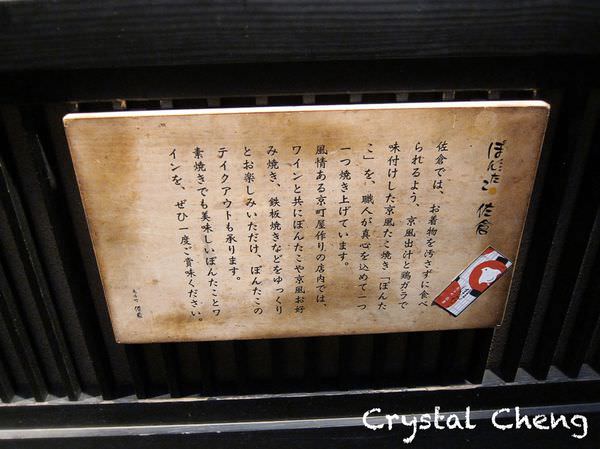 ぽんたこ 佐倉
佐倉では、お着物を汚さずに食べ
られるよう、京風出汁と鶏ガラで
味付けした京風たこ焼き「ぽんた
こ」を、職人が真心を込めて一つ
一つ焼き上げています。
風情ある京町屋作りの店内では、
ワインと共にぽんたこや京風お好
み焼き、鉄板焼きなどをゆっくり
とお楽しみいただけ、ぽんたこの
テイクアウトも承ります。
素焼きでも美味しいぽんたことワ
インを、ぜひ一度ご賞味ください。
佐倉
Crystal Cheng